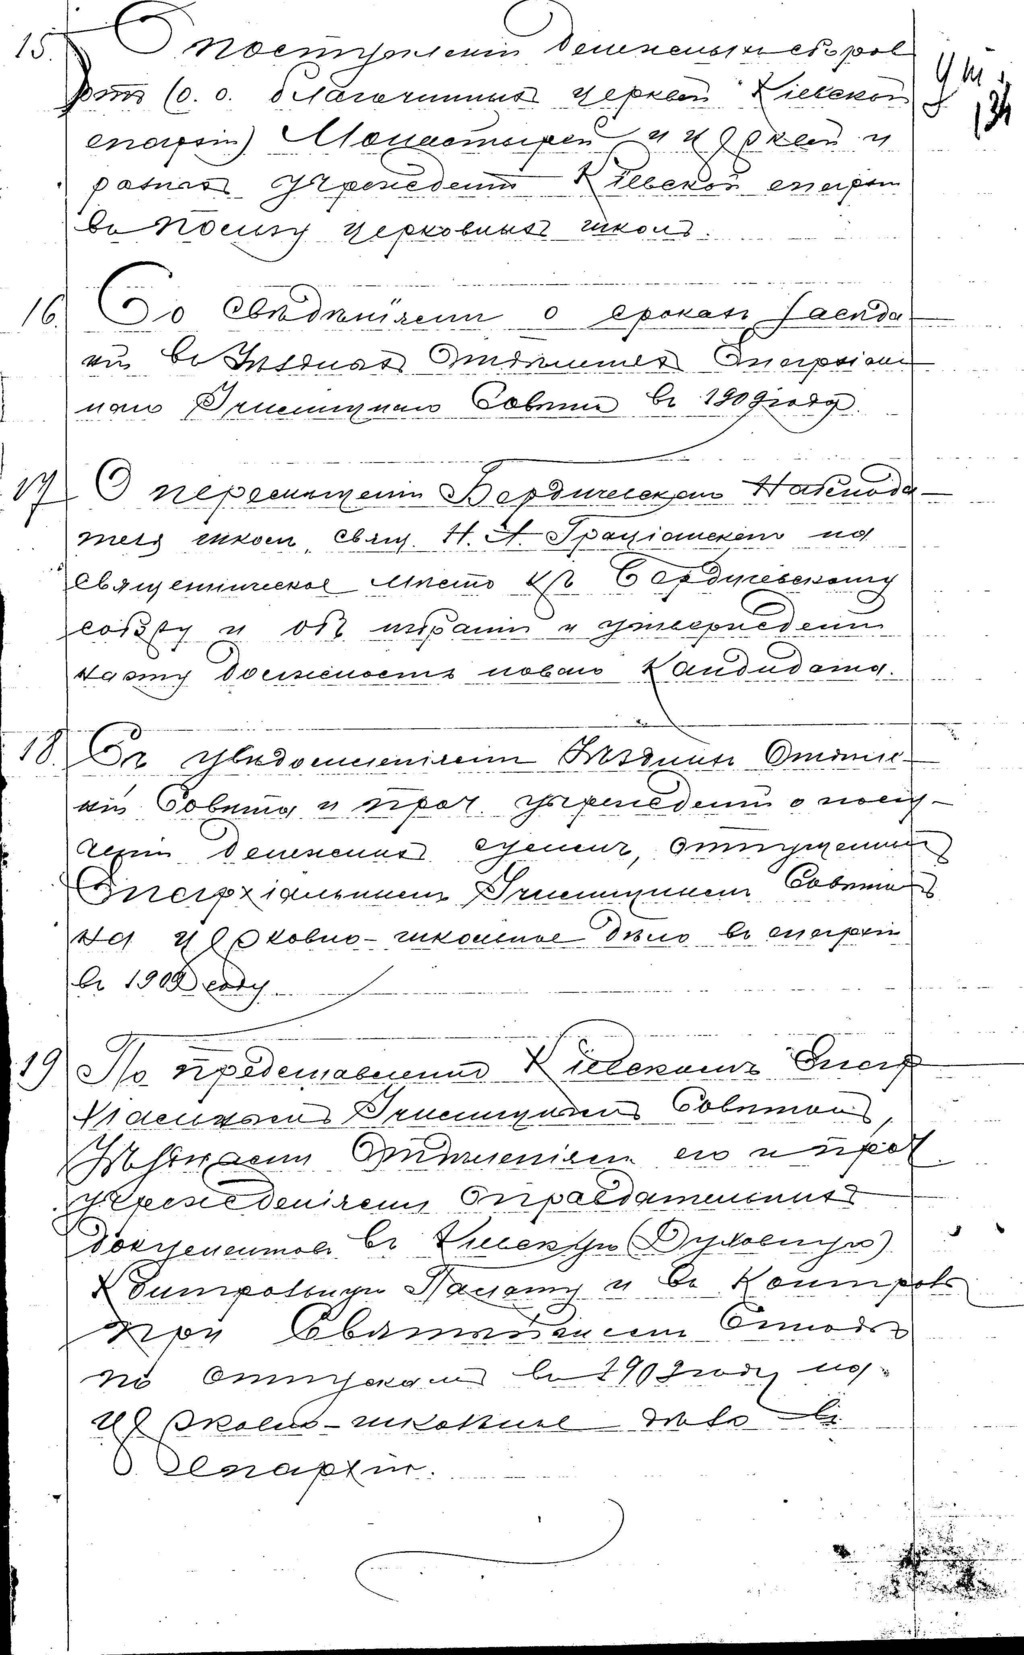 15. О поступленіи денежныхъ сборовъ
отъ (о. о. благочинныхъ церквей Кіевской
епархіи) Монастырей и церквей и
разныхъ учрежденій Кіевской епархіи
въ пользу церковныхъ школъ.
16. Со свѣдѣніями о срокахъ засѣда-
ній въ Уѣздныхъ Отдѣленіяхъ Епархіаль-
наго Училищнаго Совѣта въ 1909 году.
17 О перемѣщеніи Бердичевскаго Наблюда-
теля школъ, свящ. Н. А. Граціанскаго на
священническое мѣсто къ Бердичевскому
собору и объ избраніи и утвержденіи
на эту должность новаго кандидата.
18. Съ увѣдомленіями Уѣздныхъ Отдѣле-
ній Совѣта и проч. учрежденій о полу-
ченіи денежныхъ суммъ, отпущенныхъ
Епархіальнымъ Училищнымъ Совѣтомъ
на церковно-школьное дѣло въ епархіи
въ 1909 году
19 По представленію Кіевскимъ Епар
хіальнымъ Училищнымъ Совѣтомъ,
Уѣздными Отдѣленіями его и проч.
учрежденіями Оправдательныхъ
документовъ въ Кіевскую (Духовную)
Контрольную Палату и въ Контроль
при Святѣйшемъ Синодѣ
по отпускамъ въ 1909 году на
церковно-школьное дѣло въ
епархіи.